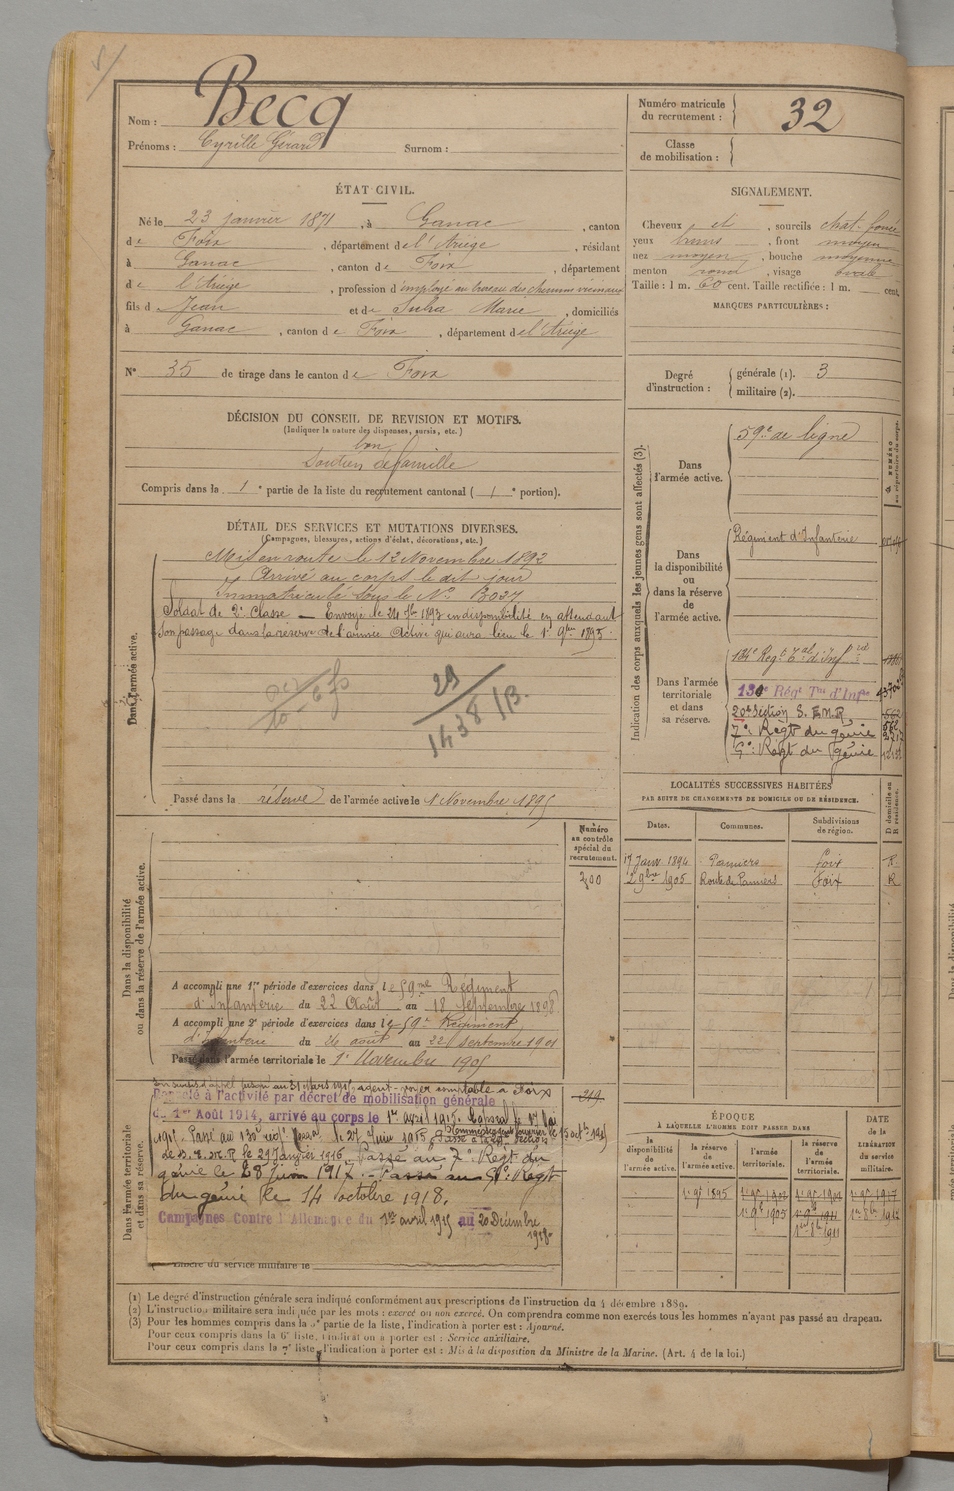 Nom : Becq
Prénoms : Cyrille Gérard Surnom :
Numéro matricule du recrutement : 32
Classe de mobilisation :
ÉTAT CIVIL.
Né le 23 janvier 1871, à Ganac, canton
de Foix, département de l'Ariège, résidant
à Ganac, canton de Foix, département
de l'Ariège, profession d'employé au bureau des chemins vicinaux
fils de Jean et de Marie, domiciliés
à Ganac, canton de Foix, département de l'Ariège
N° 35 de tirage dans le canton de Foix
SIGNALEMENT.
Cheveux et, sourcils chat. foncé
yeux bruns, front moyen
nez moyen, bouche moyenne
menton rond, visage ovale
Taille : 1 m. 60 cent. Taille rectifiée : 1 m. cent.
MARQUES PARTICULIÈRES :
Degré d'instruction : générale (1). 3
militaire (2).
DÉCISION DU CONSEIL DE REVISION ET MOTIFS.
(Indiquer la nature des dispenses, sursis, etc.)
bon
Soutien de famille
Compris dans la 1e partie de la liste du recrutement cantonal (1e portion).
DÉTAIL DES SERVICES ET MUTATIONS DIVERSES.
(Campagnes, blessures, actions d'éclat, décorations, etc.)
Dans l'armée active.
Mis en route le 12 Novembre 1892
Arrivé au corps le dit jour
Immatriculé sous le N° 3037
Soldat de 2e Classe — Envoyé le 24 7bre 1893 en disponibilité en attendant
son passage dans la réserve de l'armée active qui aura lieu le 1er 9bre 1895.
29
1438/13.
Passé dans la réserve de l'armée active le 1er Novembre 1895
Indication des corps auxquels les jeunes gens sont affectés (3).
NUMÉRO au répertoire du corps.
Dans l'armée active.
59e de ligne
Dans la disponibilité ou dans la réserve de l'armée active.
Régiment d'Infanterie
Dans l'armée territoriale et dans sa réserve.
134e Regt Tal d'Inf
130e Régt Tal d'Infie
20e Section S. E. M. R
7e Régt du génie
5e Régt du Génie
LOCALITÉS SUCCESSIVES HABITÉES
PAR SUITE DE CHANGEMENTS DE DOMICILE OU DE RÉSIDENCE.
Dates. Communes. Subdivisions de région. D domicile ou R résidence.
17 Janv. 1894 Pamiers Foix R.
2 9bre 1905 Route de Pamiers Foix R
Dans la disponibilité ou dans la réserve de l'armée active.
Numéro au contrôle spécial du recrutement.
200
A accompli une 1re période d'exercices dans le 59me Régiment
d'Infanterie du 22 Août au 18 Septembre 1898.
A accompli une 2e période d'exercices dans le 59e Régiment
d'Infanterie du 26 août au 22 septembre 1901
Passé dans l'armée territoriale le 1er Novembre 1905
Dans l'armée territoriale et dans sa réserve.
En sursis d'appel jusqu'au 31 Mars 1915, agent-voyer comptable à Foix
Rappelé à l'activité par décret de mobilisation générale
du 1er Août 1914, arrivé au corps le 1er avril 1915. Caporal le 17 Mai
1915. Passé au 130e le 27 Juin 1915
S.E.M.R le 21 Janvier 1916. Passé au 7e Régt du
génie le 28 Juin 1917. Passé au 5e Régt
du génie le 14 octobre 1918.
Campagnes Contre l'Allemagne du 1er avril 1915 au 20 Décembre
1918
219
Libéré du service militaire le
ÉPOQUE
À LAQUELLE L'HOMME DOIT PASSER DANS
la disponibilité de l'armée active. la réserve de l'armée active. l'armée territoriale. la réserve de l'armée territoriale.
DATE de la LIBÉRATION du service militaire.
1er 9e 1895
1er 9e 1905
(1) Le degré d'instruction générale sera indiqué conformément aux prescriptions de l'instruction du 4 décembre 1889.
(2) L'instruction militaire sera indiquée par les mots : exercé ou non exercé. On comprendra comme non exercés tous les hommes n'ayant pas passé au drapeau.
(3) Pour les hommes compris dans la 5e partie de la liste, l'indication à porter est : Ajourné.
Pour ceux compris dans la 6e liste, l'indication à porter est : Service auxiliaire.
Pour ceux compris dans la 7e liste, l'indication à porter est : Mis à la disposition du Ministre de la Marine. (Art. 4 de la loi.)